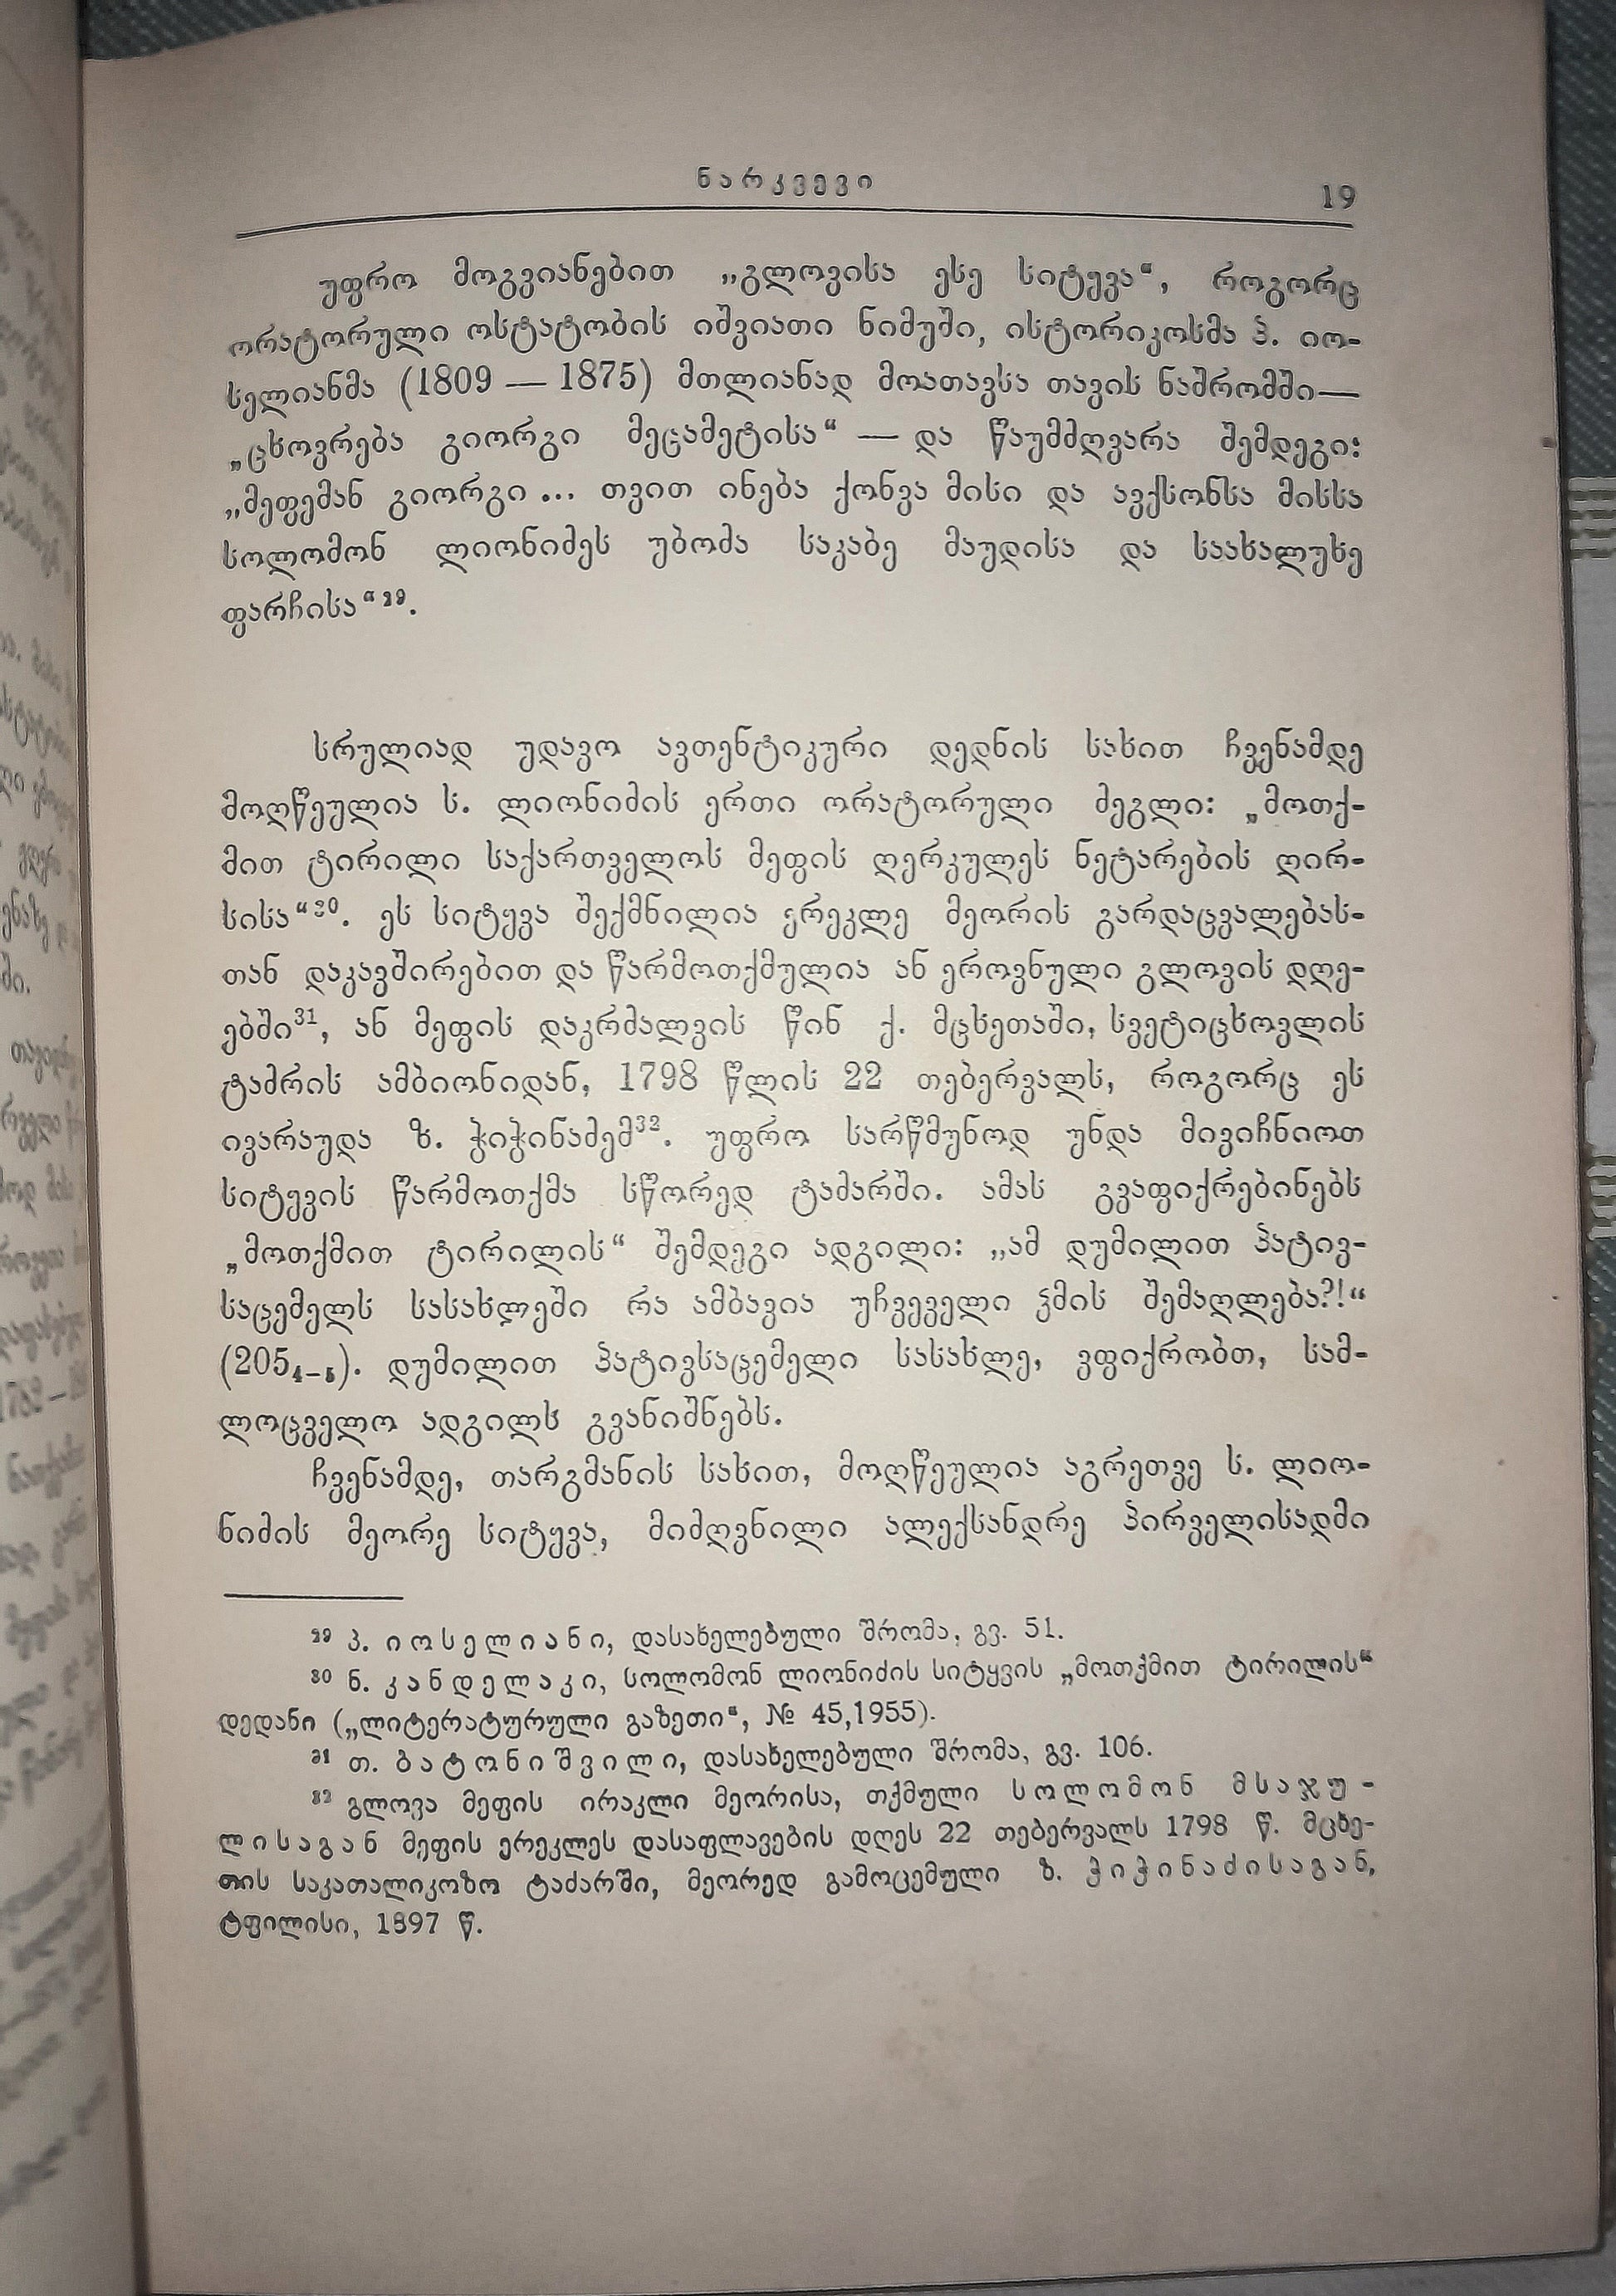 ნარკვევი
19
უფრო მოგვიანებით „გლოვისა ესე სიტყვა“, როგორც
ორატორული ოსტატობის იშვიათი ნიმუში, ისტორიკოსმა პ. იო-
სელიანმა (1809 — 1875) მთლიანად მოათავსა თავის ნაშრომში—
„ცხოვრება გიორგი მეცამეტისა“ — და წაუმძღვარა შემდეგი:
„მეფემან გიორგი... თვით ინება ქონვა მისი და ავქსონსა მისსა
სოლომონ ლიონიძეს უბოძა საკაბე მაუდისა და საახალუხე
ფარჩისა“²⁹.
სრულიად უდავო ავთენტიკური დედნის სახით ჩვენამდე
მოღწეულია ს. ლიონიძის ერთი ორატორული ძეგლი: „მოთქ-
მით ტირილი საქართველოს მეფის ღერკულეს ნეტარების ღირ-
სისა“³⁰. ეს სიტყვა შექმნილია ერეკლე მეორის გარდაცვალებას-
თან დაკავშირებით და წარმოთქმულია ან ეროვნული გლოვის დღე-
ებში³¹, ან მეფის დაკრძალვის წინ ქ. მცხეთაში, სვეტიცხოვლის
ტაძრის ამბიონიდან, 1798 წლის 22 თებერვალს, როგორც ეს
ივარაუდა ზ. ჭიჭინაძემ³². უფრო სარწმუნოდ უნდა მივიჩნიოთ
სიტყვის წარმოთქმა სწორედ ტაძარში. ამას გვაფიქრებინებს
„მოთქმით ტირილის“ შემდეგი ადგილი: „ამ დუმილით პატივ-
საცემელს სასახლეში რა ამბავია უჩვეველი ჴმის შემაღლება?!“
(205₄₋₅). დუმილით პატივსაცემელი სასახლე, ვფიქრობთ, სამ-
ლოცველო ადგილს გვანიშნებს.
ჩვენამდე, თარგმანის სახით, მოღწეულია აგრეთვე ს. ლიო-
ნიძის მეორე სიტყვა, მიძღვნილი ალექსანდრე პირველისადმი
²⁹ პ. იოსელიანი, დასახელებული შრომა, გვ. 51.
³⁰ ნ. კანდელაკი, სოლომონ ლიონიძის სიტყვის „მოთქმით ტირილის“
დედანი („ლიტერატურული გაზეთი“, № 45,1955).
³¹ თ. ბატონიშვილი, დასახელებული შრომა, გვ. 106.
³² გლოვა მეფის ირაკლი მეორისა, თქმული სოლომონ მსაჯუ-
ლისაგან მეფის ერეკლეს დასაფლავების დღეს 22 თებერვალს 1798 წ. მცხე-
თის საკათალიკოზო ტაძარში, მეორედ გამოცემული ზ. ჭიჭინაძისაგან,
ტფილისი, 1897 წ.